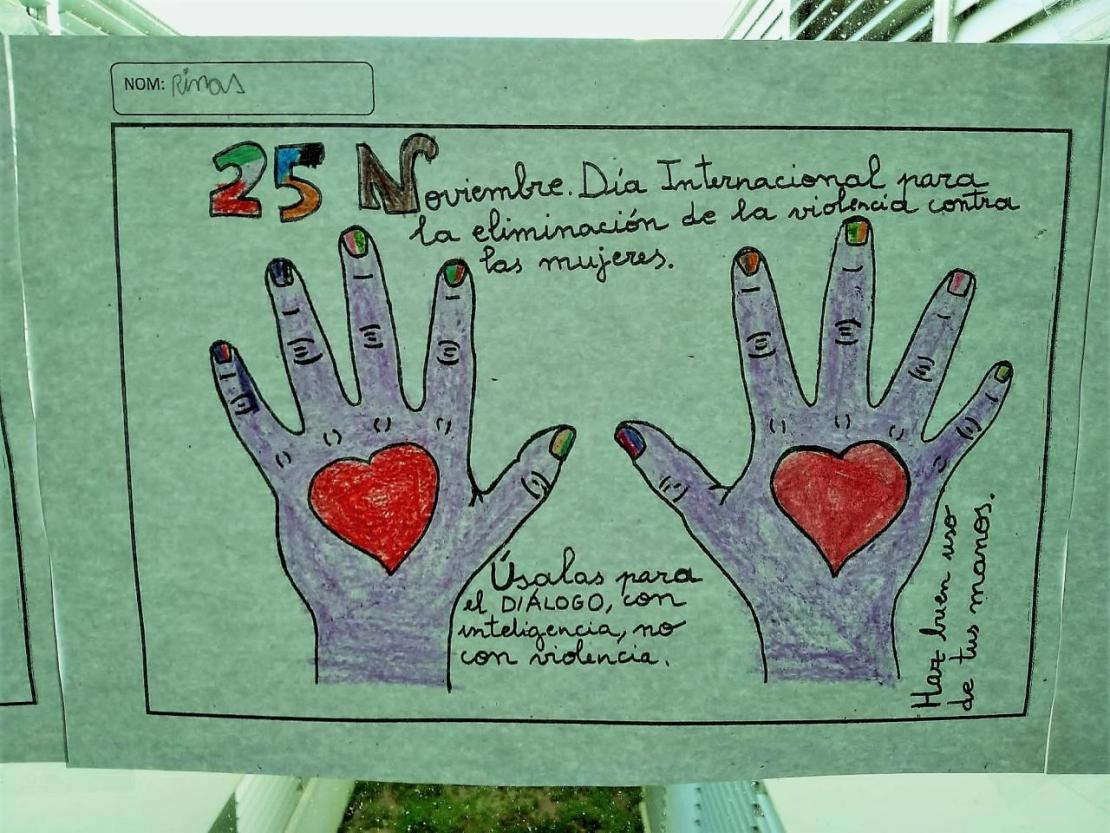 NOM: Rimas
25 Noviembre. Día Internacional para
la eliminación de la violencia contra
las mujeres.
Úsalas para
el DIÁLOGO, con
inteligencia, no
con violencia.
Haz buen uso
de tus manos.